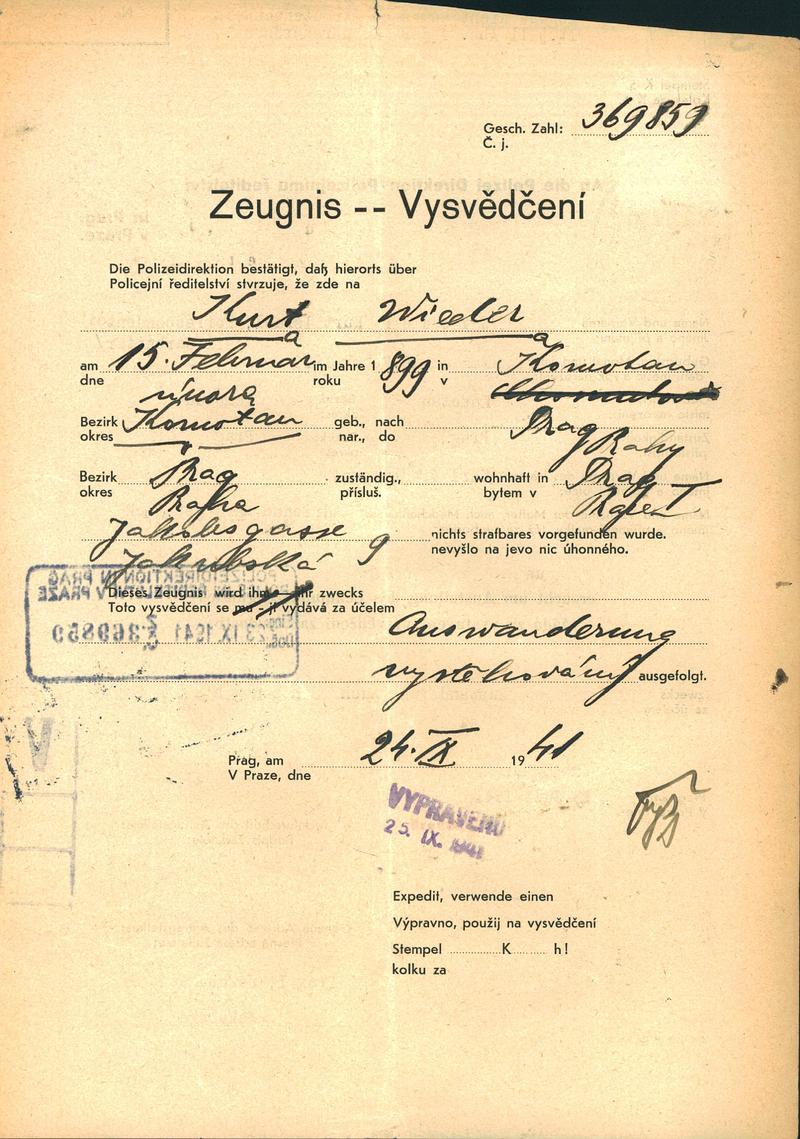 Gesch. Zahl: 369859
Č. j.
Zeugnis -- Vysvědčení
Die Polizeidirektion bestätigt, daß hierorts über
Policejní ředitelství stvrzuje, že zde na
Kurt a Wieder a
am 15. Februar im Jahre 1899 in Komotau
dne února roku v
Bezirk Komotau geb., nach Prag
okres nar., do Prahy
Bezirk Prag zuständig., wohnhaft in Prag I
okres Praha přísluš. bytem v
Jakobsgasse 9 nichts strafbares vorgefunden wurde.
Jakubská nevyšlo na jevo nic úhonného.
Dieses Zeugnis wird ihm - ihr zwecks
Toto vysvědčení se mu - jí vydává za účelem
POLIZEIDIREKTION IN PRAG
POLICEJNÍ ŘEDITELSTVÍ V PRAZE
23 IX 1941 369859
Auswanderung
vystěhování ausgefolgt.
Prag, am 24. IX. 1941
V Praze, dne
VYPRAVENO
25. IX. 1941
Expedit, verwende einen
Výpravno, použij na vysvědčení
Stempel K h!
kolku za